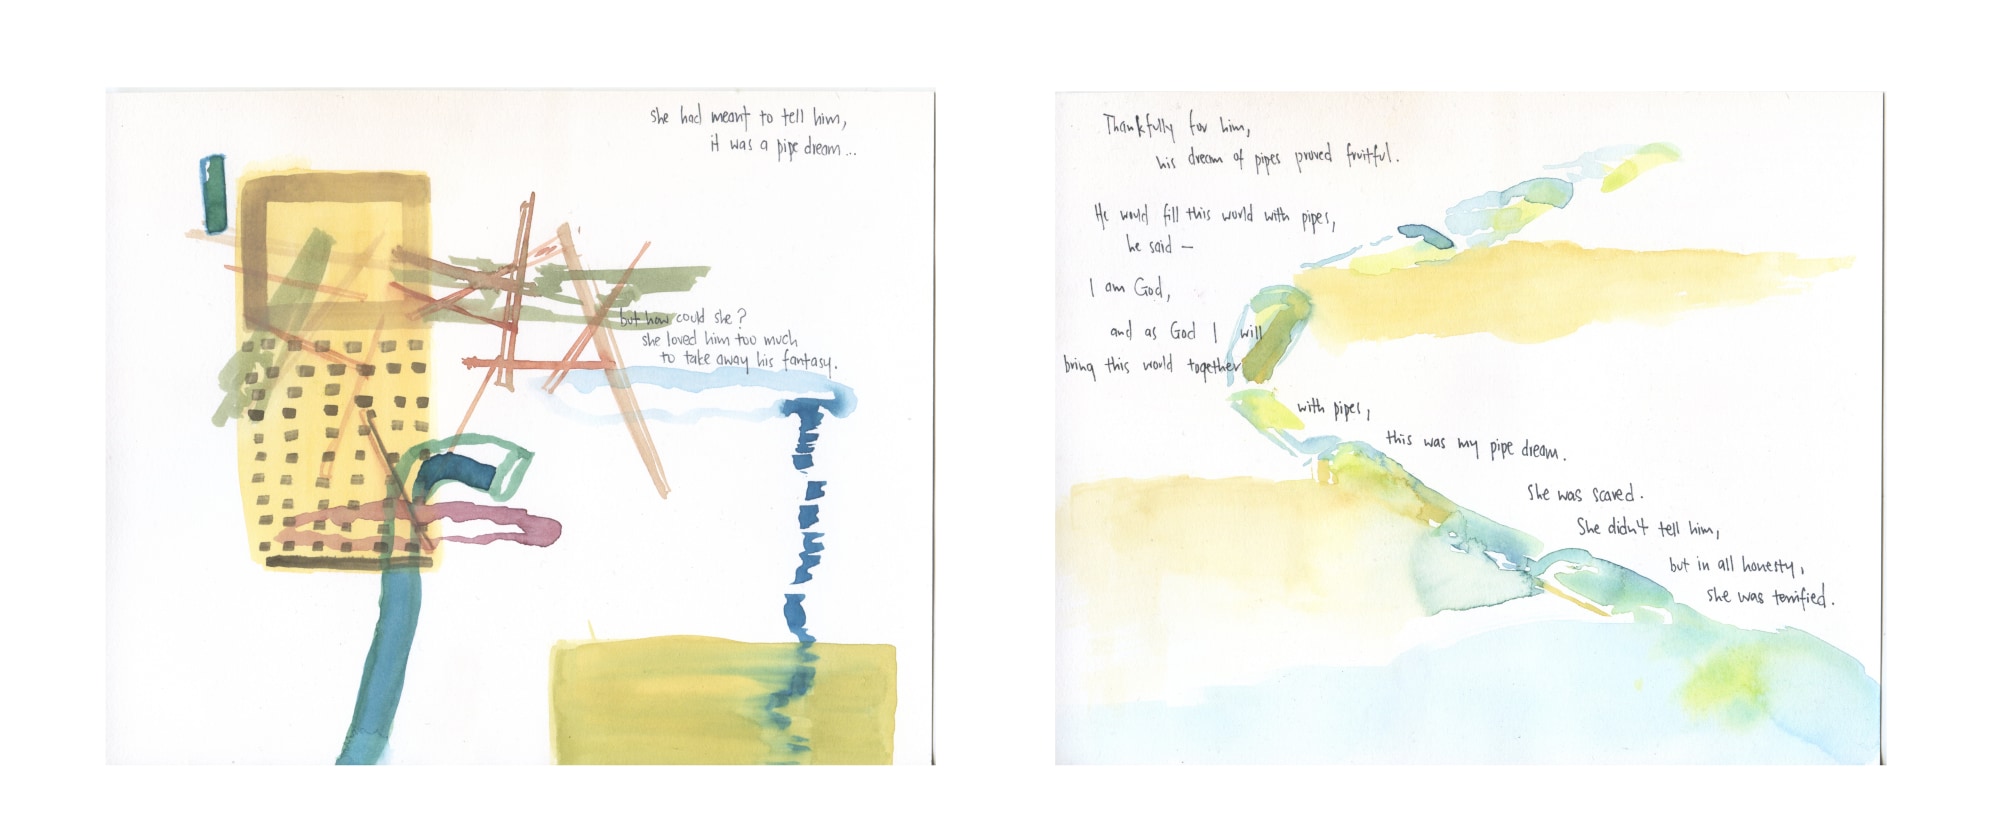 she had meant to tell him,
it was a pipe dream...
but how could she?
she loved him too much
to take away his fantasy.
Thankfully for him,
his dream of pipes proved fruitful.
He would fill this world with pipes,
he said —
I am God,
and as God I will
bring this world together
with pipes,
this was my pipe dream.
She was scared.
She didn't tell him,
but in all honesty,
she was terrified.